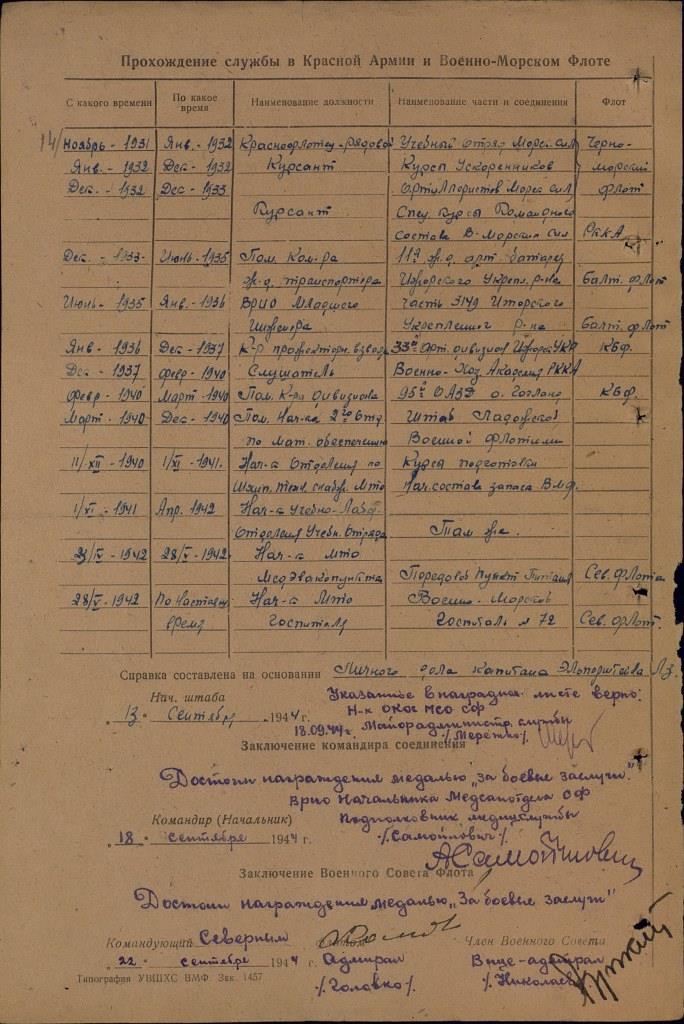 Прохождение службы в Красной Армии и Военно-Морском Флоте
С какого времени По какое время Наименование должности Наименование части и соединения Флот
14/ Ноябрь - 1931 Янв. - 1932 Краснофлотец-рядовой Учебный отряд Морск. сил Черно-
Янв. - 1932 Дек - 1932 Курсант Курсы Ускоренников морский
Дек. - 1932 Дек - 1933 Артиллеристов Морск сил флот
Курсант Спец. Курсы Командного
состава В-Морских сил РККА
Дек. - 1933 - Июнь - 1935 Пом. Ком-ра 11я ж.д. арт. батарея
ж-д. транспортера Ижорского Укрепл. р-на Балт. флот
Июнь - 1935 Янв. - 1936 ВРИО Младшего часть 3149 Ижорского
Инженера Укрепленног р-на Балт. флот
Янв - 1936 Дек - 1937 К-р прожекторн. взвода 33й Арт. дивизион КБФ.
Дек - 1937 февр - 1940 Слушатель Военно-Хоз. Академия РККА
февр - 1940 Март - 1940 Пом. К-ра дивизиона 95й ОАЗД о. Гогланд КБФ.
Март - 1940 Дек - 1940 Пом. Нач-ка 2го Отд. Штаб Ладожской
по мат. обеспечению Военной Флотилии
11/XII - 1940 1/VI - 1941. Нач-к Отделения по Курсы подготовки
Шхип. техн. снабж. Мто Нач. состава запаса ВМФ.
1/VI - 1941 Апр. 1942 Нач-к Учебно-
Отделения Учебн. Отряда Там же.
/IV - 1942 28/V - 1942 Нач-к Мто
Медэвакопункта Передовой Пункт Сев. флота
28/V - 1942 По настоящ. Нач-к Мто Военно-Морской
время Госпиталя Госпиталь № 72 Сев. флот.
Справка составлена на основании Личного дела капитана
Нач. штаба Указанное в наградном листе верно:
"13" Сентября 1944 г. Н-к ОКОС МСО СФ
18.09.44 г. Майор административн. службы
/Мережко/
Заключение командира соединения
Достоин награждения медалью "За боевые заслуги."
Врио Начальника Медсанотдела СФ
Командир (Начальник) Подполковник медицслужбы
"18" сентября 1944 г. /Самойлович/
АСамойлович
Заключение Военного Совета Флота
Достоин награждения медалью "За боевые заслуги"
Командующий Северным флотом Член Военного Совета
"22" сентября 1944 г. Адмирал Вице-адмирал
Типография УВШХС ВМФ. Зак. 1457
/Головко/ /Николаев/